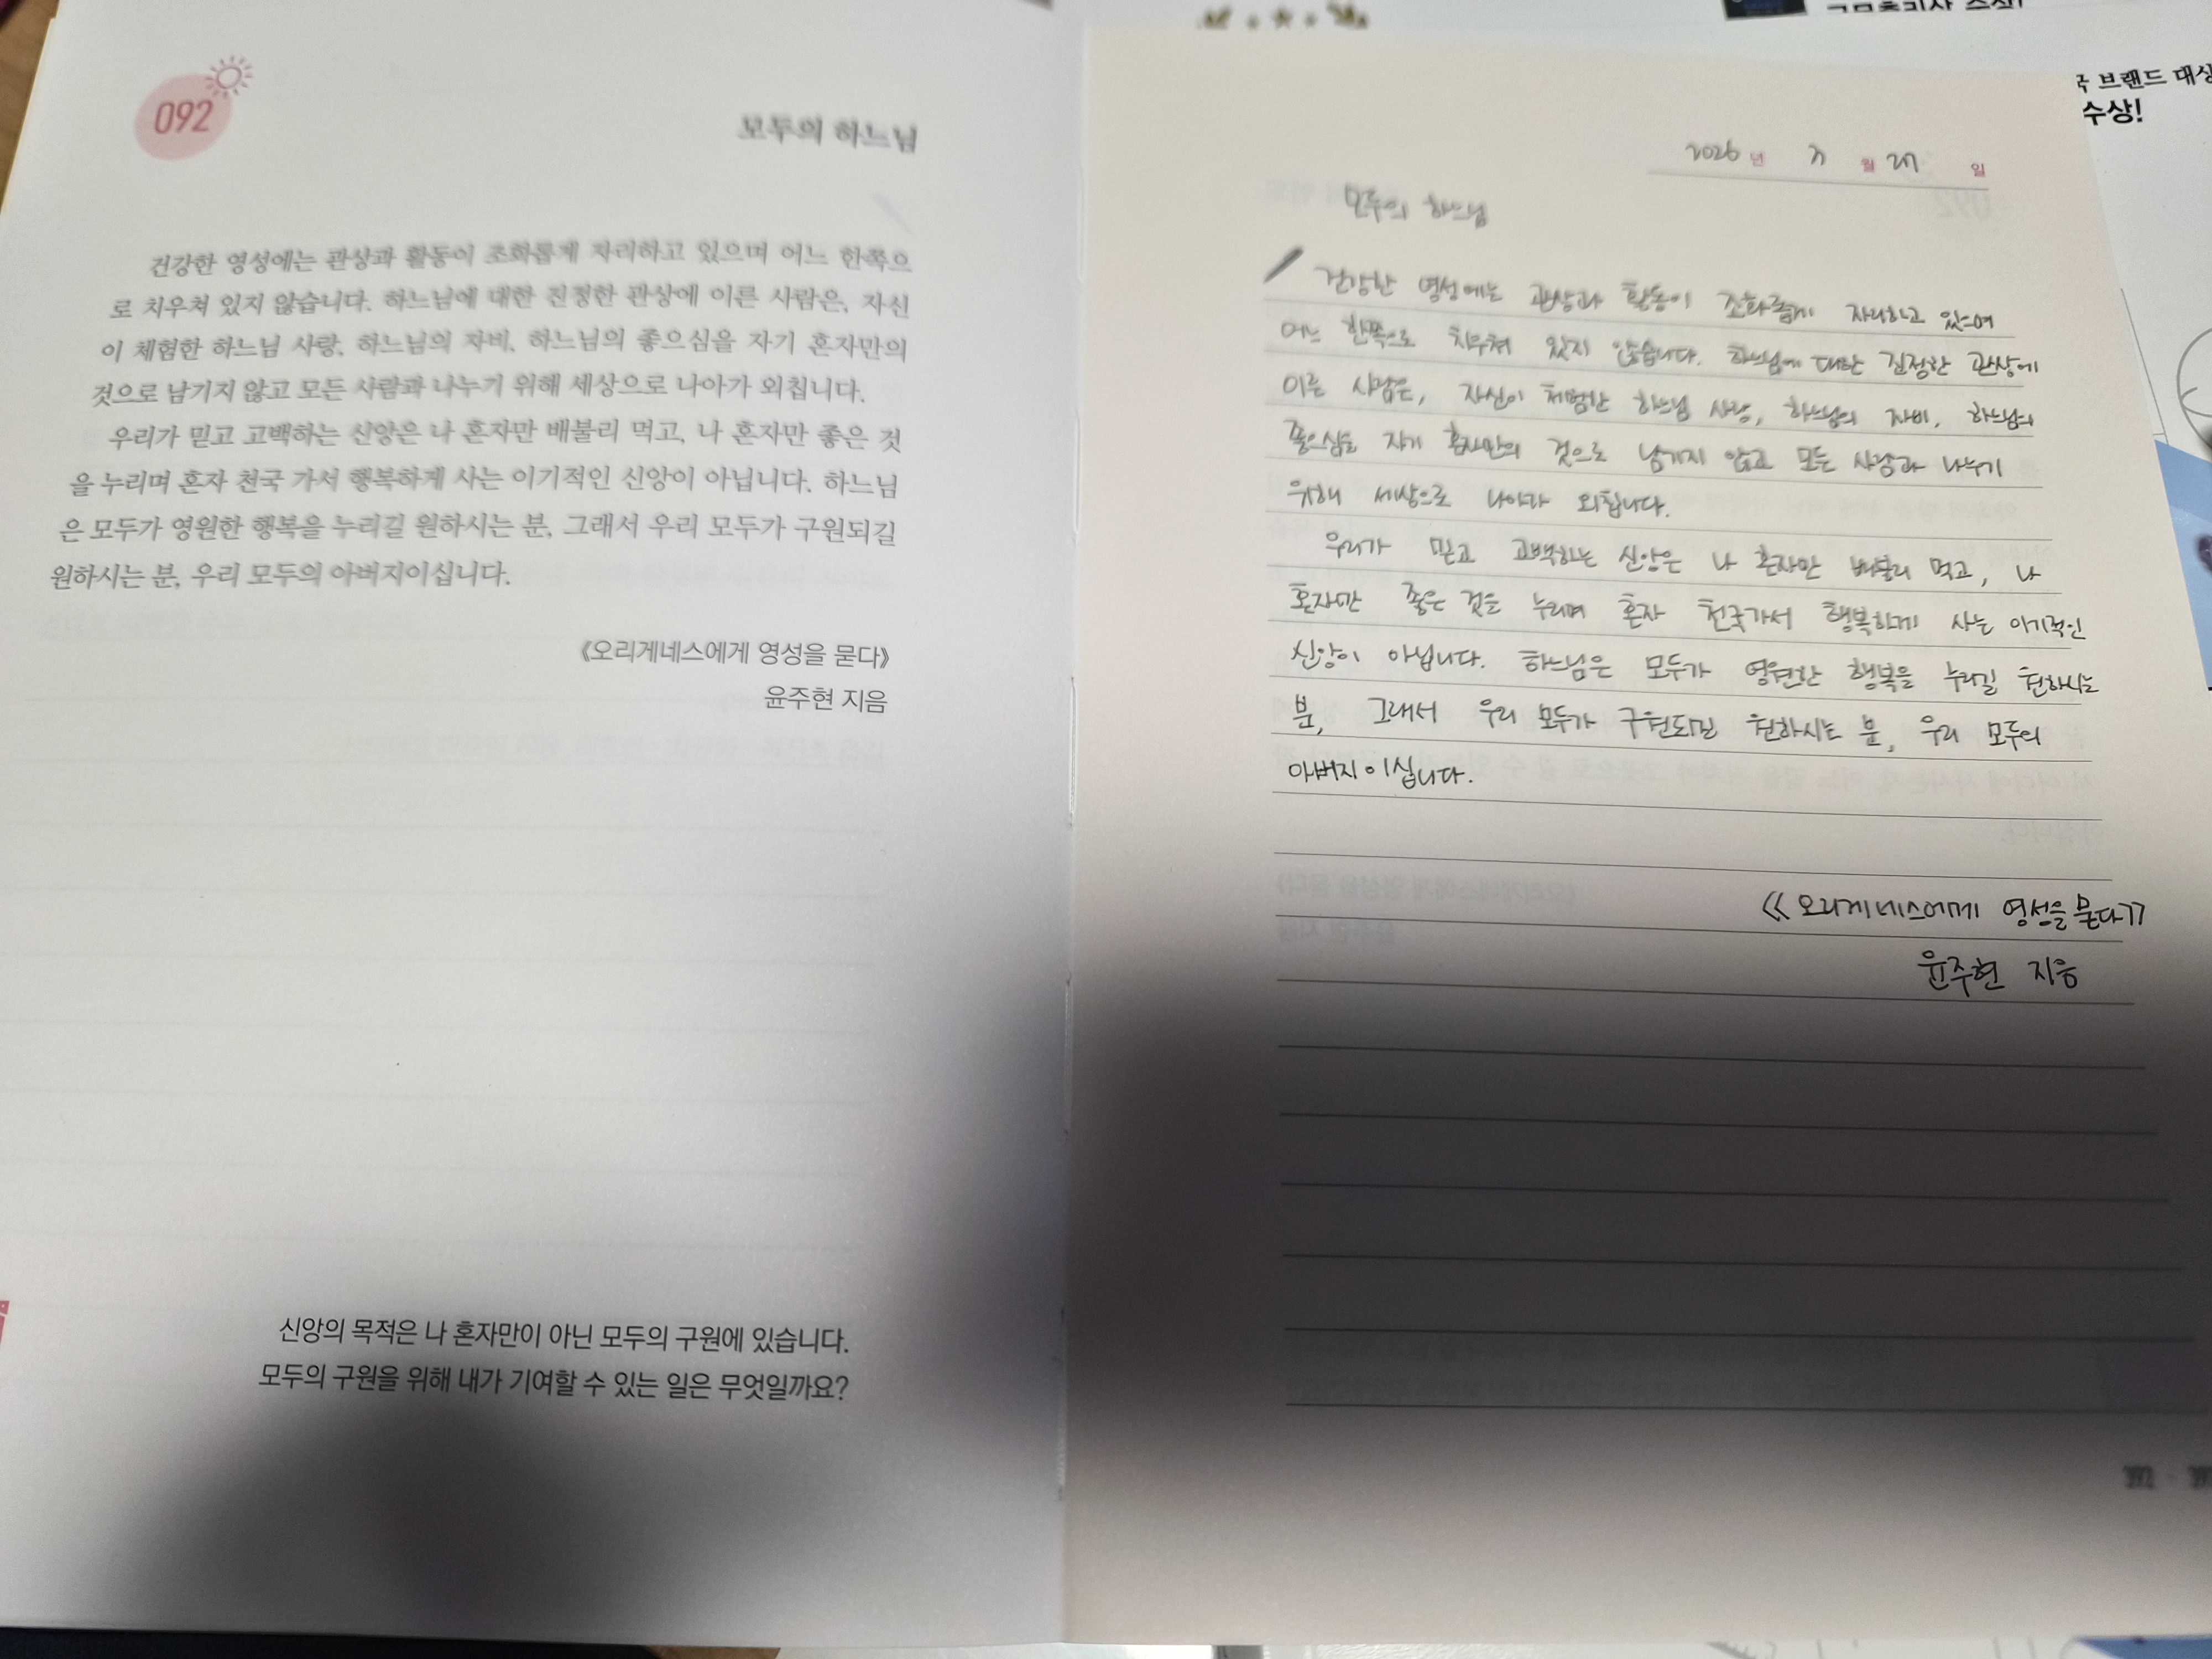 092
모두의 하느님
건강한 영성에는 관상과 활동이 조화롭게 자리하고 있으며 어느 한쪽으
로 치우쳐 있지 않습니다. 하느님에 대한 진정한 관상에 이른 사람은, 자신
이 체험한 하느님 사랑, 하느님의 자비, 하느님의 좋으심을 자기 혼자만의
것으로 남기지 않고 모든 사람과 나누기 위해 세상으로 나아가 외칩니다.
우리가 믿고 고백하는 신앙은 나 혼자만 배불리 먹고, 나 혼자만 좋은 것
을 누리며 혼자 천국 가서 행복하게 사는 이기적인 신앙이 아닙니다. 하느님
은 모두가 영원한 행복을 누리길 원하시는 분, 그래서 우리 모두가 구원되길
원하시는 분, 우리 모두의 아버지이십니다.
《오리게네스에게 영성을 묻다》
윤주현 지음
신앙의 목적은 나 혼자만이 아닌 모두의 구원에 있습니다.
모두의 구원을 위해 내가 기여할 수 있는 일은 무엇일까요?
2026 년 월 일
모두의 하느님
건강한 영성에는 관상과 활동이 조화롭게 자리하고 있으며
어느 한쪽으로 치우쳐 있지 않습니다. 하느님에 대한 진정한 관상에
이른 사람은, 자신이 체험한 하느님 사랑, 하느님의 자비, 하느님의
좋으심을 자기 혼자만의 것으로 남기지 않고 모든 사람과 나누기
위해 세상으로 나아가 외칩니다.
우리가 믿고 고백하는 신앙은 나 혼자만 배불리 먹고, 나
혼자만 좋은 것을 누리며 혼자 천국가서 행복하게 사는 이기적인
신앙이 아닙니다. 하느님은 모두가 영원한 행복을 누리길 원하시는
분, 그래서 우리 모두가 구원되길 원하시는 분, 우리 모두의
아버지이십니다.
《오리게네스에게 영성을 묻다》
윤주현 지음
브랜드 대상
수상!